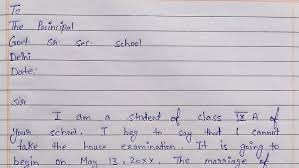 To
The Principal
Govt. Sr. Sec. School
Delhi
Date:
Sir
I am a student of class IX A of
your school. I beg to say that I cannot
take the house examination. It is going to
begin on May 13, 20XX. The marriage of